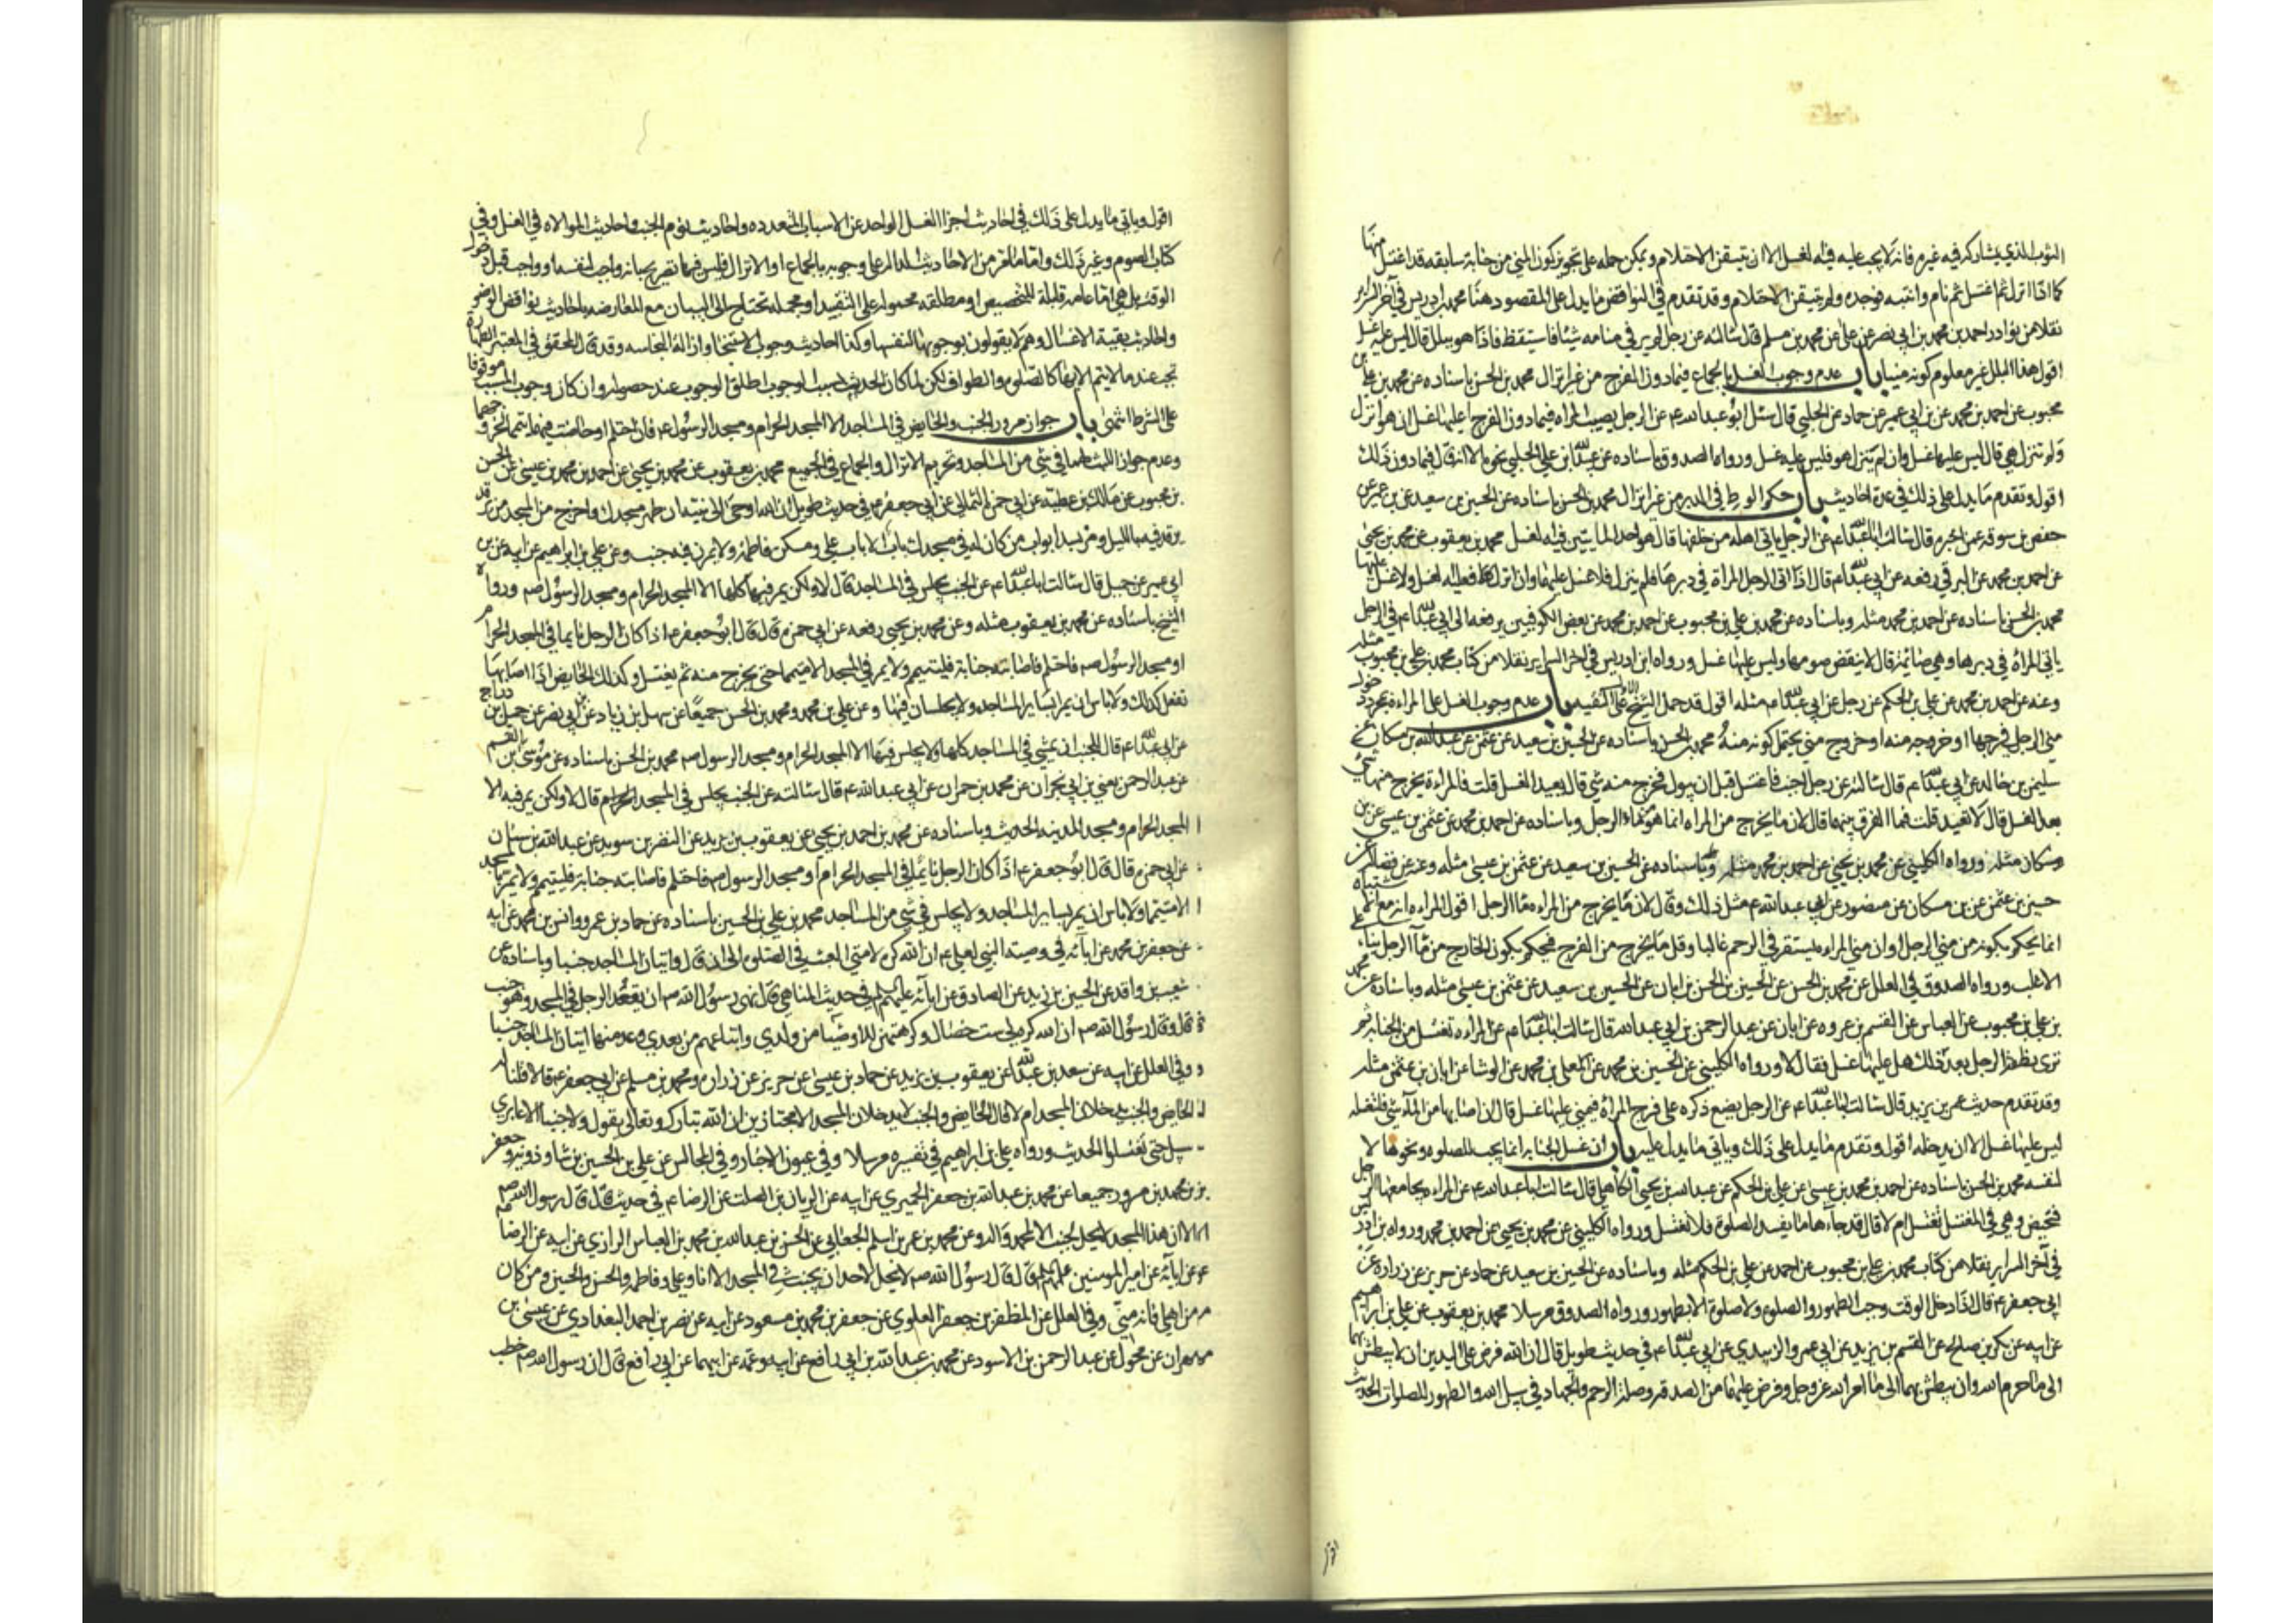 الثوب الذي يشاركه فيه غيره فانه لا يجب عليه فيه الغسل الا ان تيقن الاحتلام ويمكن حمله على تجويز كون المني من جنابة سابقه قد اغتسل منها
كما اذا انزل ثم اغتسل ثم نام وانتبه فوجده ولم يتيقن الاحتلام وقد تقدم في النواقض ما يدل على المقصود هنا محمد بن ادريس في آخر السراير
نقلا من نوادر احمد بن محمد بن ابي نصر عن علي عن محمد بن مسلم قال سالته عن رجل لم ير في منامه شيئا فاستيقظ فاذا هو ببلل قال ليس عليه غسل
اقول هذا البلل غير معلوم كونه منيا باب عدم وجوب الغسل بالجماع فيما دون الفرج من غير انزال محمد بن الحسن باسناده عن محمد بن علي بن
محبوب عن احمد بن محمد عن بن ابي عمير عن حماد عن الحلبي قال سئل ابو عبد الله ع عن الرجل يصيب المراه فيما دون الفرج اعليها غسل ان هو انزل
ولم تنزل هي قال ليس عليها غسل وان لم ينزل هو فليس عليه غسل ورواه الصدوق باسناده عن عبيد الله بن علي الحلبي نحوه الا انه قال فيما دون ذلك
اقول وتقدم ما يدل على ذلك في عدة احاديث باب حكم الوطي في الدبر من غير انزال محمد بن الحسن باسناده عن الحسين بن سعيد عن بن ابي عمير عن
حفص بن سوقه عمن اخبره قال سالت ابا عبد الله ع عن الرجل ياتي اهله من خلفها قال هو احد الماتيين فيه الغسل محمد بن يعقوب عن محمد بن يحيى
عن احمد بن محمد عن البرقي رفعه عن ابي عبد الله ع قال اذا اتى الرجل المراة في دبرها فلم ينزل فلا غسل عليهما وان انزل فعليه الغسل ولا غسل عليها
محمد بن الحسن باسناده عن احمد بن محمد مثله وباسناده عن محمد بن علي بن محبوب عن احمد بن محمد عن بعض الكوفيين يرفعه الى ابي عبد الله ع في الرجل
ياتي المراة في دبرها وهي صائمة قال لا ينقض صومها وليس عليها غسل ورواه ابن ادريس في آخر السراير نقلا من كتاب محمد بن علي بن محبوب مثله
وعنه عن احمد بن محمد عن علي بن الحكم عن رجل عن ابي عبد الله ع مثله اقول قد حمله الشيخ على التقيه باب عدم وجوب الغسل على المراءة بخروج
مني الرجل من فرجها او خروجه منه او خروج مني يحتمل كونه منه محمد بن الحسن باسناده عن الحسين بن سعيد عن عثمن عن عبد الله بن مسكان عن
سليمن بن خالد عن ابي عبد الله ع قال سالته عن رجل اجنب فاغتسل قبل ان يبول فخرج منه شي قال يعيد الغسل قلت فالمراة يخرج منها شيء
بعد الغسل قال لا تعيد قلت فما الفرق بينهما قال لان ما يخرج من المراه انما هو من ماء الرجل وباسناده عن احمد بن محمد عن عثمن بن عيسى عن بن
مسكان مثله ورواه الكليني عن محمد بن يحيى عن احمد بن محمد مثله وباسناده عن الحسين بن سعيد عن عثمن بن عيسى مثله وعنه عن فضاله عن
حسين بن عثمن عن بن مسكان عن منصور عن ابي عبد الله ع مثل ذلك وقال لان ما يخرج من المراه ماء الرجل اقول المراد انه مع الاشتباه
انما يحكم بكونه من مني الرجل لان مني المراه يستقر في الرحم غالبا وقل ما يخرج من الفرج فيحكم بكون الخارج من ماء الرجل بناء على
الاغلب ورواه الصدوق في العلل عن محمد بن الحسن عن الحسين بن الحسن بن ابان عن الحسين بن سعيد عن عثمن بن عيسى مثله وباسناده عن محمد
بن علي بن محبوب عن العباس عن القسم بن عروه عن ابان عن عبد الرحمن بن ابي عبد الله قال سالت ابا عبد الله ع عن المراه تغتسل من الجنابة ثم
ترى نطفة الرجل بعد ذلك هل عليها غسل فقال لا ورواه الكليني عن الحسين بن محمد عن المعلى بن محمد عن الوشا عن ابان بن عثمن مثله
وقد تقدم حديث عمر بن يزيد قال سالت ابا عبد الله ع عن الرجل يضع ذكره على فرج المراة فيمني عليها غسل قال ان اصابها من الماء شي فلتغسله
ليس عليها غسل الا ان يدخله اقول وتقدم ما يدل على ذلك وياتي ما يدل عليه باب ان غسل الجنابة انما يجب للصلوه ونحوها لا
لنفسه محمد بن الحسن باسناده عن احمد بن محمد بن عيسى عن علي بن الحكم عن عبد الله بن يحيى الكاهلي قال سالت ابا عبد الله ع عن المراه يجامعها الرجل
فتحيض وهي في المغتسل تغتسل ام لا قال قد جاءها ما يفسد الصلوة فلا تغتسل ورواه الكليني عن محمد بن يحيى عن احمد بن محمد ورواه بن ادريس
في آخر السراير نقلا من كتاب محمد بن علي بن محبوب عن احمد عن علي بن الحكم مثله وباسناده عن الحسين بن سعيد عن حماد عن حريز عن زراره عن
ابي جعفر ع قال اذا دخل الوقت وجب الطهور والصلوة ولا صلوة الا بطهور ورواه الصدوق مرسلا محمد بن يعقوب عن علي بن ابراهيم
عن ابيه عن بكر بن صالح عن القسم بن يزيد عن ابي عمرو الزبيدي عن ابي عبد الله ع في حديث طويل قال ان الله فرض على اليدين ان لا يبطش بهما
الى ما حرم الله وان يبطش بهما الى ما امر الله عز وجل وفرض عليهما من الصدقه وصلة الرحم والجهاد في سبيل الله والطهور للصلوات الحديث
اقول وياتي ما يدل على ذلك في احاديث اجزا الغسل الواحد عن الاسباب المتعدده واحاديث نوم الجنب واحاديث الموالاه في الغسل وفي
كتاب الصوم وغير ذلك واما ما مر من الاحاديث الداله على وجوبه بالجماع او الانزال فليس فيها تصريح بانه واجب لنفسه او واجب قبل دخول
الوقت بل هي اما عامه قابلة للتخصيص او مطلقه محموله على التقييد او مجمله تحتاج الى البيان مع المعارضه باحاديث نواقض الوضو
واحاديث بقية الاغسال وهم لا يقولون بوجوبها لنفسها وكذا احاديث وجوب الاستنجا وازالة النجاسه وقد قال المحقق في المعتبر الطهارة
تجب عند ما لا يتم الا بها كالصلوه والطواف لكن لما كان الحدث سببا لوجوب اطلق الوجوب عند حصوله وان كان وجوب المسبب موقوفا
على الشرط انتهى باب جواز مرور الجنب والحايض في المساجد الا المسجد الحرام ومسجد الرسول ع فان احتلم او حاضت فيهما تيمما لخروجهما
وعدم جواز اللبث لهما في شي من المساجد وتحريم الانزال والجماع في الجميع محمد بن يعقوب عن محمد بن يحيى عن احمد بن محمد بن عيسى عن الحسن
بن محبوب عن مالك بن عطيه عن ابي حمزه الثمالي عن ابي جعفر ع في حديث طويل ان الله اوحى الى نبيه ان طهر مسجدك واخرج من المسجد من يرقد
يرقد فيه بالليل ومر بسد ابواب من كان له في مسجدك باب الا باب علي ومسكن فاطمة ولا يمرن فيه جنب وعن علي بن ابراهيم عن ابيه عن بن
ابي عمير عن جميل قال سالت ابا عبد الله ع عن الجنب يجلس في المساجد قال لا ولكن يمر فيها كلها الا المسجد الحرام ومسجد الرسول ص ورواه
الشيخ باسناده عن محمد بن يعقوب مثله وعن محمد بن يحيى رفعه عن ابي حمزه قال قال ابو جعفر ع اذا كان الرجل نايما في المسجد الحرام
او مسجد الرسول ص فاحتلم فاصابته جنابة فليتيمم ولا يمر في المسجد الا متيمما حتى يخرج منه ثم يغتسل وكذلك الحايض اذا اصابها
تفعل كذلك ولا باس ان يمرا بساير المساجد ولا يجلسان فيها وعن علي بن محمد ومحمد بن الحسن جميعا عن سهل بن زياد عن بن ابي نصر عن جميل بن دراج
عن ابي عبد الله ع قال للجنب ان يمشي في المساجد كلها ولا يجلس فيها الا المسجد الحرام ومسجد الرسول ص محمد بن الحسن باسناده عن موسى بن القسم
عن عبد الرحمن يعني بن ابي نجران عن محمد بن حمران عن ابي عبد الله ع قال سالته عن الجنب يجلس في المسجد الحرام قال لا ولكن يمر فيه الا
المسجد الحرام ومسجد المدينه الحديث وباسناده عن محمد بن احمد بن يحيى عن يعقوب بن يزيد عن النضر بن سويد عن عبد الله بن سنان
عن ابي حمزه قال قال ابو جعفر ع اذا كان الرجل نايما في المسجد الحرام او مسجد الرسول ص فاحتلم فاصابته جنابة فليتيمم ولا يمر في المسجد
الا متيمما ولا باس ان يمر بساير المساجد ولا يجلس في شي من المساجد محمد بن علي بن الحسين باسناده عن حماد بن عمرو وانس بن محمد عن ابيه
عن جعفر بن محمد عن آبائه في وصية النبي لعلي ع ان الله كره لامتي العبث في الصلوه الى ان قال واتيان المساجد جنبا وباسناده عن
شعيب بن واقد عن الحسين بن زيد عن الصادق عن آبائه عليهم السلام في حديث المناهي قال نهى رسول الله ص ان يقعد الرجل في المسجد وهو جنب
قال وقال رسول الله ص ان الله كره لي ست خصال وكرهتهن للاوصيا من ولدي واتباعهم من بعدي وعد منها اتيان المساجد جنبا
وفي العلل عن ابيه عن سعد بن عبد الله عن يعقوب بن يزيد عن حماد بن عيسى عن حريز عن زراره ومحمد بن مسلم عن ابي جعفر ع قالا قلنا له
الحايض والجنب يدخلان المسجد ام لا قال الحايض والجنب لا يدخلان المسجد الا مجتازين ان الله تبارك وتعالى يقول ولا جنبا الا عابري
سبيل حتى تغتسلوا الحديث ورواه علي بن ابراهيم في تفسيره مرسلا وفي عيون الاخبار وفي المجالس عن علي بن الحسين بن شاذويه وجعفر
بن محمد بن مسرور جميعا عن محمد بن عبد الله بن جعفر الحميري عن ابيه عن الريان بن الصلت عن الرضا ع في حديث قال قال رسول الله ص
الا ان هذا المسجد لا يحل لجنب الا لمحمد وآله وعن محمد بن عمر بن اسلم الجعابي عن الحسن بن عبد الله بن محمد بن العباس الرازي عن ابيه عن الرضا
عن آبائه عن امير المومنين عليهم السلام قال قال رسول الله ص لا يحل لاحد ان يجنب في المسجد الا انا وعلي وفاطمه والحسن والحسين ومن كان
من اهلي فانه مني وفي العلل عن المظفر بن جعفر العلوي عن جعفر بن محمد بن مسعود عن ابيه عن نصر بن احمد البغدادي عن عيسى بن
مهران عن مخول عن عبد الرحمن بن الاسود عن محمد بن عبيد الله بن ابي رافع عن ابيه وعمه عن ابيهما عن ابي رافع قال ان رسول الله ص خطب